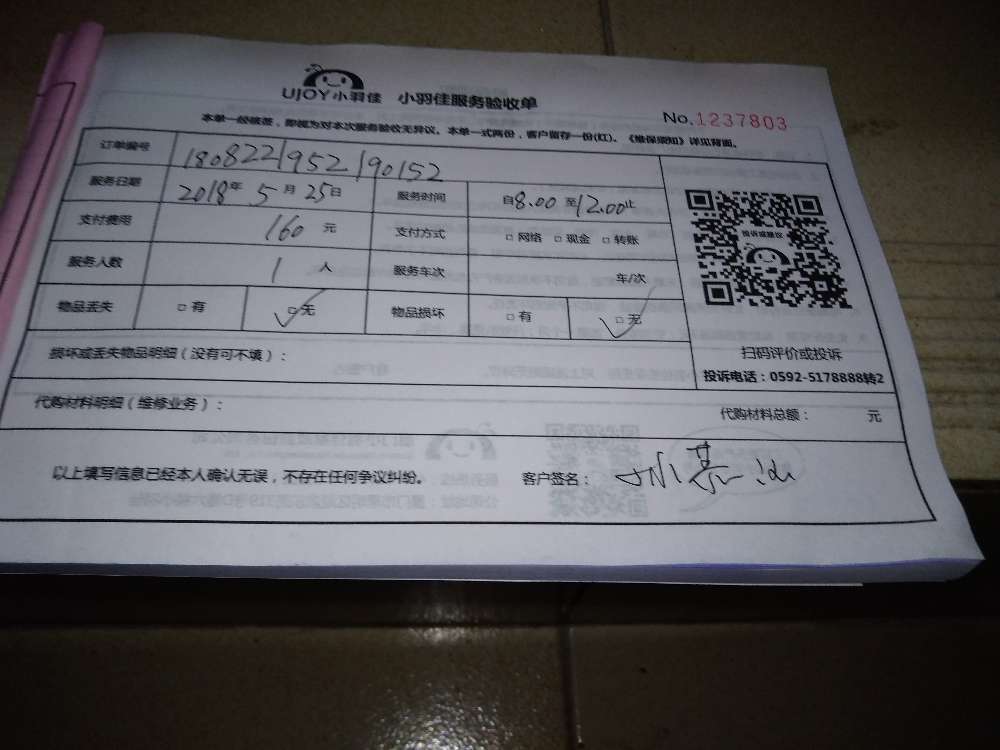 UJOY小羽佳 小羽佳服务验收单
No.1237803
本单一经核签，即视为对本次服务验收无异议。本单一式两份，客户留存一份(红)。《维保须知》详见背面。
订单编号 180822195219015​2
服务日期 2018年5月25日 服务时间 自8.00至12.00止
支付费用 160元 支付方式 □网络 □现金 □转账
服务人数 1人 服务车次 车/次
物品丢失 □有 □无 物品损坏 □有 □无
投诉或建议
扫码评价或投诉
投诉电话：0592-5178888转2
损坏或丢失物品明细（没有可不填）：
代购材料明细（维修业务）： 代购材料总额： 元
以上填写信息已经本人确认无误，不存在任何争议纠纷。 客户签名：